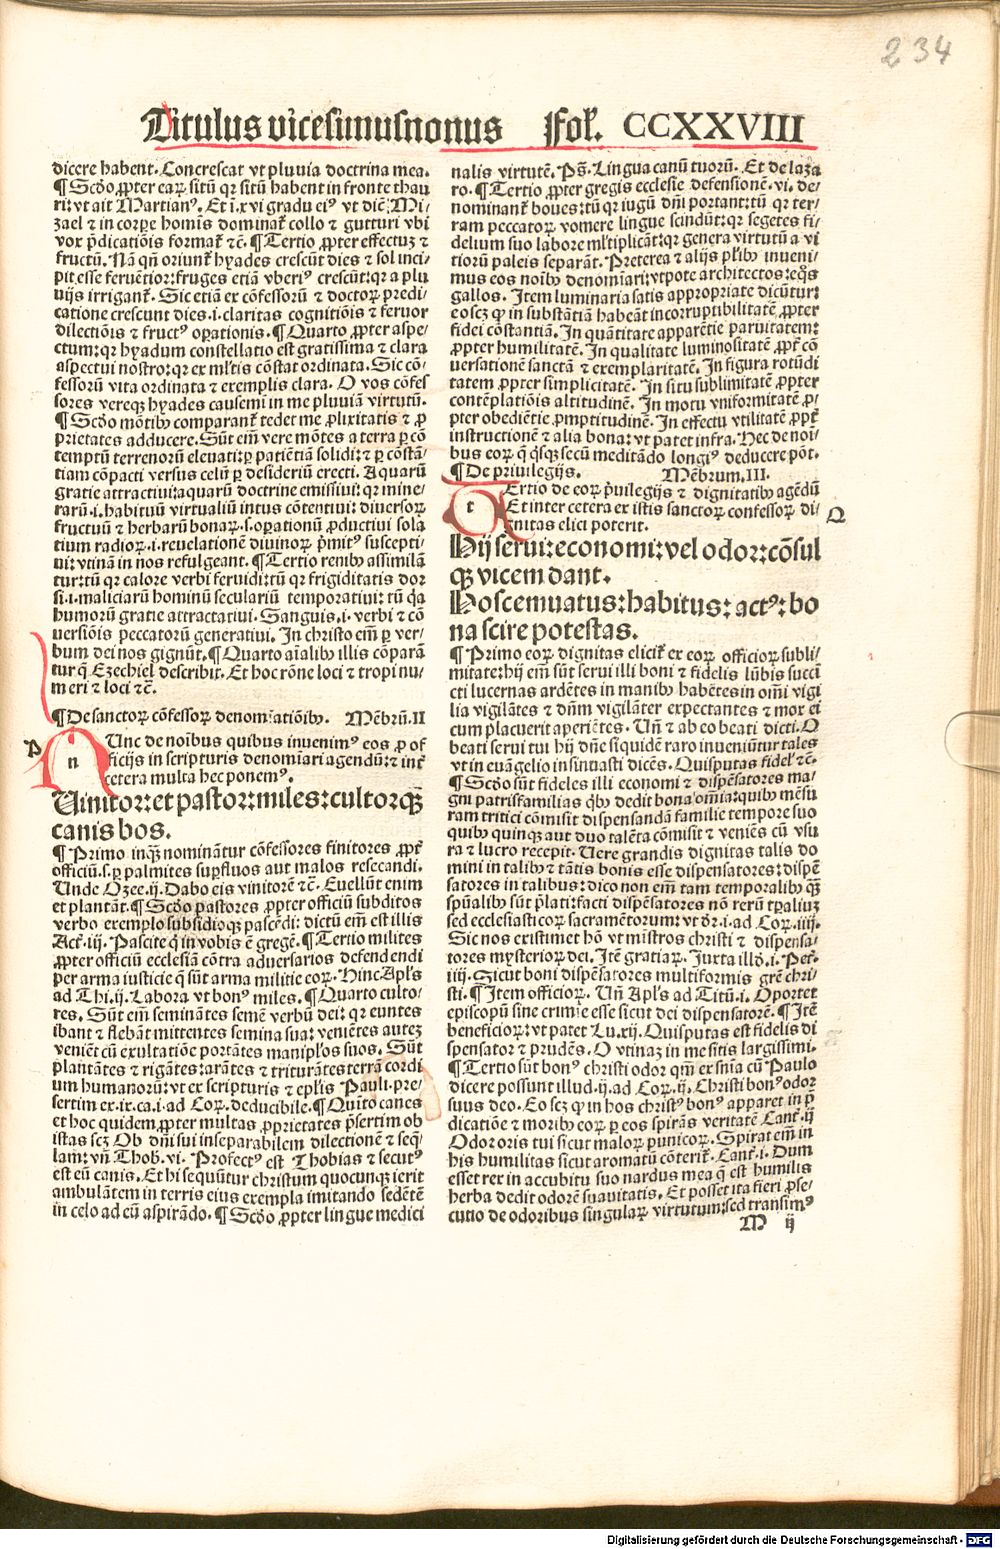 234
Titulus vicesimusnonus Fol. CCXXVIII
dicere habent. Concrescat vt pluuia doctrina mea.
¶ Scdo ꝓpter eaꝝ sitū qr sitū habent in fronte thau
ri: vt ait Martianꝰ. Et i.xvi gradu eiꝰ vt dic̄: Mi⸗
zael ⁊ in corpe homīs dominat̄ collo ⁊ gutturi vbi
vox p̄dicatiōis format̄ ⁊c̄. ¶ Tertio ꝓpter effectuz ⁊
fructū. Nā qn̄ oriunt̄ hyades crescūt dies ⁊ sol inci⸗
pit esse feruētior: fruges etiā vberiꝰ crescūt: qr a plu
uijs irrigant̄. Sic etiā ex cōfessorū ⁊ doctoꝝ predi⸗
catione crescunt dies .i. claritas cognitiōis ⁊ feruor
dilectiōis ⁊ fructꝰ oꝑationis. ¶ Quarto ꝓpter aspe⸗
ctum: qr hyadum constellatio est gratissima ⁊ clara
aspectui nostro: qr ex ml̄tis cōstat ordinata. Sic cō⸗
fessorū vita ordinata ⁊ exemplis clara. O vos cōfes
sores vereqꝫ hyades causemini in me pluuiā virtutū.
¶ Scdo mōtibꝰ comparant̄ tedet me ꝓlixitatis ⁊ ꝓ
prietates adducere. Sūt em̄ vere mōtes a terra ꝑ cō
temptū terrenorū eleuati: ꝑ patiētiā solidi: ⁊ ꝑ cōstā⸗
tiam cōpacti versus celū ꝑ desideriū erecti. Aquarū
gratie attractiui: aquarū doctrine emissiui: qr mine⸗
rarū .i. habituū virtualiū intus cōtentiui: diuersoꝝ
fructuū ⁊ herbarū bonaꝝ .s. oꝑationū ꝓductiui sola
tium radioꝝ .i. reuelationē diuinoꝝ p̄mitꝰ suscepti⸗
ui: vtinā in nos refulgeant. ¶ Tertio renibꝰ assimilā
tur: tū qr calore verbi feruidi: tū qr frigiditatis dor
si .i. maliciarū hominū seculariū temporatiui: tū q̄a
humorū gratie attractatiui. Sanguis .i. verbi ⁊ cō
uersiōis peccatorū generatiui. In christo em̄ ꝑ ver⸗
bum dei nos gignūt. ¶ Quarto aīalibꝰ illis cōparā
tur q̄ Ezechiel describit. Et hoc rōne loci ⁊ tropi nu⸗
meri ⁊ loci ⁊c̄.
¶ De sanctoꝝ cōfessoꝝ denomīatiōibꝰ. Mēbrū.II
P
n Unc de noībus quibus inuenimꝰ eos ꝓ of
ficijs in scripturis denomiari agendū: ⁊ int̄
cetera multa hec ponemꝰ.
Uinitor: et pastor: miles: cultorqꝫ
canis bos.
¶ Primo inqꝫ nominātur cōfessores finitores ꝓpt̄
officiū .s. ꝑ palmites suꝑfluos aut malos resecandi.
Unde Ozee .ij. Dabo eis vinitorē ⁊c̄. Euellūt enim
et plantāt. ¶ Scdo pastores ꝓpter officiū subditos
verbo exemplo subsidioqꝫ pascēdi: dictū em̄ est illis
Act̄ .iij. Pascite q̄ in vobis ē gregē. ¶ Tertio milites
ꝓpter officiū ecclesiā cōtra aduersarios defendendi
per arma iusticie q̄ sūt arma militie eoꝝ. Hinc Apl̄s
ad Thi.ij. Labora vt bonꝰ miles. ¶ Quarto culto⸗
res. Sūt em̄ seminātes semē verbū dei: qr euntes
ibant ⁊ flebāt mittentes semina sua: veniētes autez
veniēt cū exultatiōe portātes manipl̄os suos. Sūt
plantātes ⁊ rigātes: arātes ⁊ triturātes terrā cordi
um humanorū: vt ex scripturis ⁊ epl̄is Pauli. pre⸗
sertim ex.ix.ca.i.ad Coꝝ. deducibile. ¶ Quīto canes
et hoc quidem ꝓpter multas ꝓprietates p̄sertim ob
istas scꝫ Ob dn̄i sui inseparabilem dilectionē ⁊ seq̄⸗
lam: vn̄ Thob.vi. Profectꝰ est Thobias ⁊ secutꝰ
est eū canis. Et hi sequūtur christum quocunqꝫ ierit
ambulātem in terris eius exempla imitando sedētē
in celo ad eū aspirādo. ¶ Scdo ꝓpter lingue medici
nalis virtutē. Ps̄. Lingua canū tuorū. Et de laza
ro. ¶ Tertio ꝓpter gregis ecclesie defensionē .vi. de⸗
nominant̄ boues: tū qr iugū dn̄i portant: tū qr ter⸗
ram peccatoꝝ vomere lingue scindūt: qr segetes fi⸗
delium suo labore ml̄tiplicāt: qr genera virtutū a vi
tiorū paleis separāt. Preterea ⁊ alijs pl̄ibꝰ inueni⸗
mus eos noībꝰ denomīari: vtpote architectos: eqōs
gallos. Item luminaria satis appropriate dicūtur:
eo scꝫ ꝙ in substātiā habeāt incorruptibilitatē ꝓpter
fidei cōstantiā. In quātitate apparētie paruitatem:
ꝓpter humilitatē. In qualitate luminositatē ꝓpt̄ cō
uersationē sanctā ⁊ exemplaritatē. In figura rotūdi
tatem ꝓpter simplicitatē. In situ sublimitatē ꝓpter
contēplatiōis altitudinē. In motu vniformitatē ꝓ⸗
pter obediētie ꝓmptitudinē. In effectu vtilitatē ꝓpt̄
instructionē ⁊ alia bona: vt patet infra. Hec de noi⸗
bus eoꝝ q̄ q̄sqꝫ secū meditādo longiꝰ deducere pōt.
¶ De priuilegijs. Mēbrum.III.
t Ertio de eoꝝ p̄uilegijs ⁊ dignitatibꝰ agēdū
Et inter cetera ex istis sanctoꝝ confessoꝝ di⸗
gnitas elici poterit.
Q
Hij serui: economi: vel odor: cōsul
qꝫ vicem dant.
Hos cemuatus: habitus: actꝰ: bo
na scire potestas.
¶ Primo eoꝝ dignitas elicit̄ ex eoꝝ officioꝝ subli⸗
mitate: hij em̄ sūt serui illi boni ⁊ fidelis lūbis succī
cti lucernas ardētes in manibꝰ habētes in om̄i vigi
lia vigilātes ⁊ dn̄m vigilāter expectantes ⁊ mox ei
cum placuerit aperiētes. Un̄ ⁊ ab eo beati dicti. O
beati serui tui hij dn̄e siquidē raro inueniūtur tales
vt in euāgelio insinuasti dicēs. Quisputas fidel̓ ⁊c̄.
¶ Scdo sūt fideles illi economi ⁊ dispēsatores ma⸗
gni patrisfamilias q̄bꝰ dedit bona om̄ia: quibꝰ mēsu
ram tritici cōmisit dispensandā familie tempore suo
quibꝰ quinqꝫ aut duo talēta cōmisit ⁊ veniēs cū vsu
ra ⁊ lucro recepit. Uere grandis dignitas talis do
mini in talibꝰ ⁊ tātis bonis esse dispensatores: dispē
satores in talibus: dico non em̄ tam temporalibꝰ qꝫ
spūalibꝰ sūt p̄lati: facti dispēsatores nō rerū tꝑaliuz
sed ecclesiasticoꝝ sacramētorum: vt dr̄.i.ad Coꝝ.iiij.
Sic nos existimet hō vt ministros christi ⁊ dispensa⸗
tores mysterioꝝ dei. Itē gratiaꝝ. Juxta illd.i. Pet̄.
iiij. Sicut boni dispēsatores multiformis grē chri⸗
sti. ¶ Item officioꝝ. Un̄ Apl̄s ad Titū.i. Oportet
episcopū sine crimīe esse sicut dei dispensatorē. ¶ Itē
beneficioꝝ: vt patet Lu.xij. Quisputas est fidelis di
spensator ⁊ prudēs. O vtinaz in me sitis largissimi.
¶ Tertio sūt bonꝰ christi odor qm̄ ex snia cū Paulo
dicere possunt illud .ij.ad Coꝝ.ij. Christi bonꝰ odor
suus deo. Eo scꝫ ꝙ in hos christꝰ bonꝰ apparet in p̄
dicatiōe ⁊ moribꝰ eoꝝ ꝑ eos spirās veritatē Cant̄.ij
Odor oris tui sicut maloꝝ punicoꝝ. Spirat em̄ in
his humilitas sicut aromatū cōterit̄. Cant̄.i. Dum
esset rex in accubitu suo nardus mea q̄ est humilis
herba dedit odorē suauitatis. Et posset ita fieri ꝓse⸗
cutio de odoribus singulaꝝ virtutum: sed transimꝰ
M ij
Digitalisierung gefördert durch die Deutsche Forschungsgemeinschaft - DFG